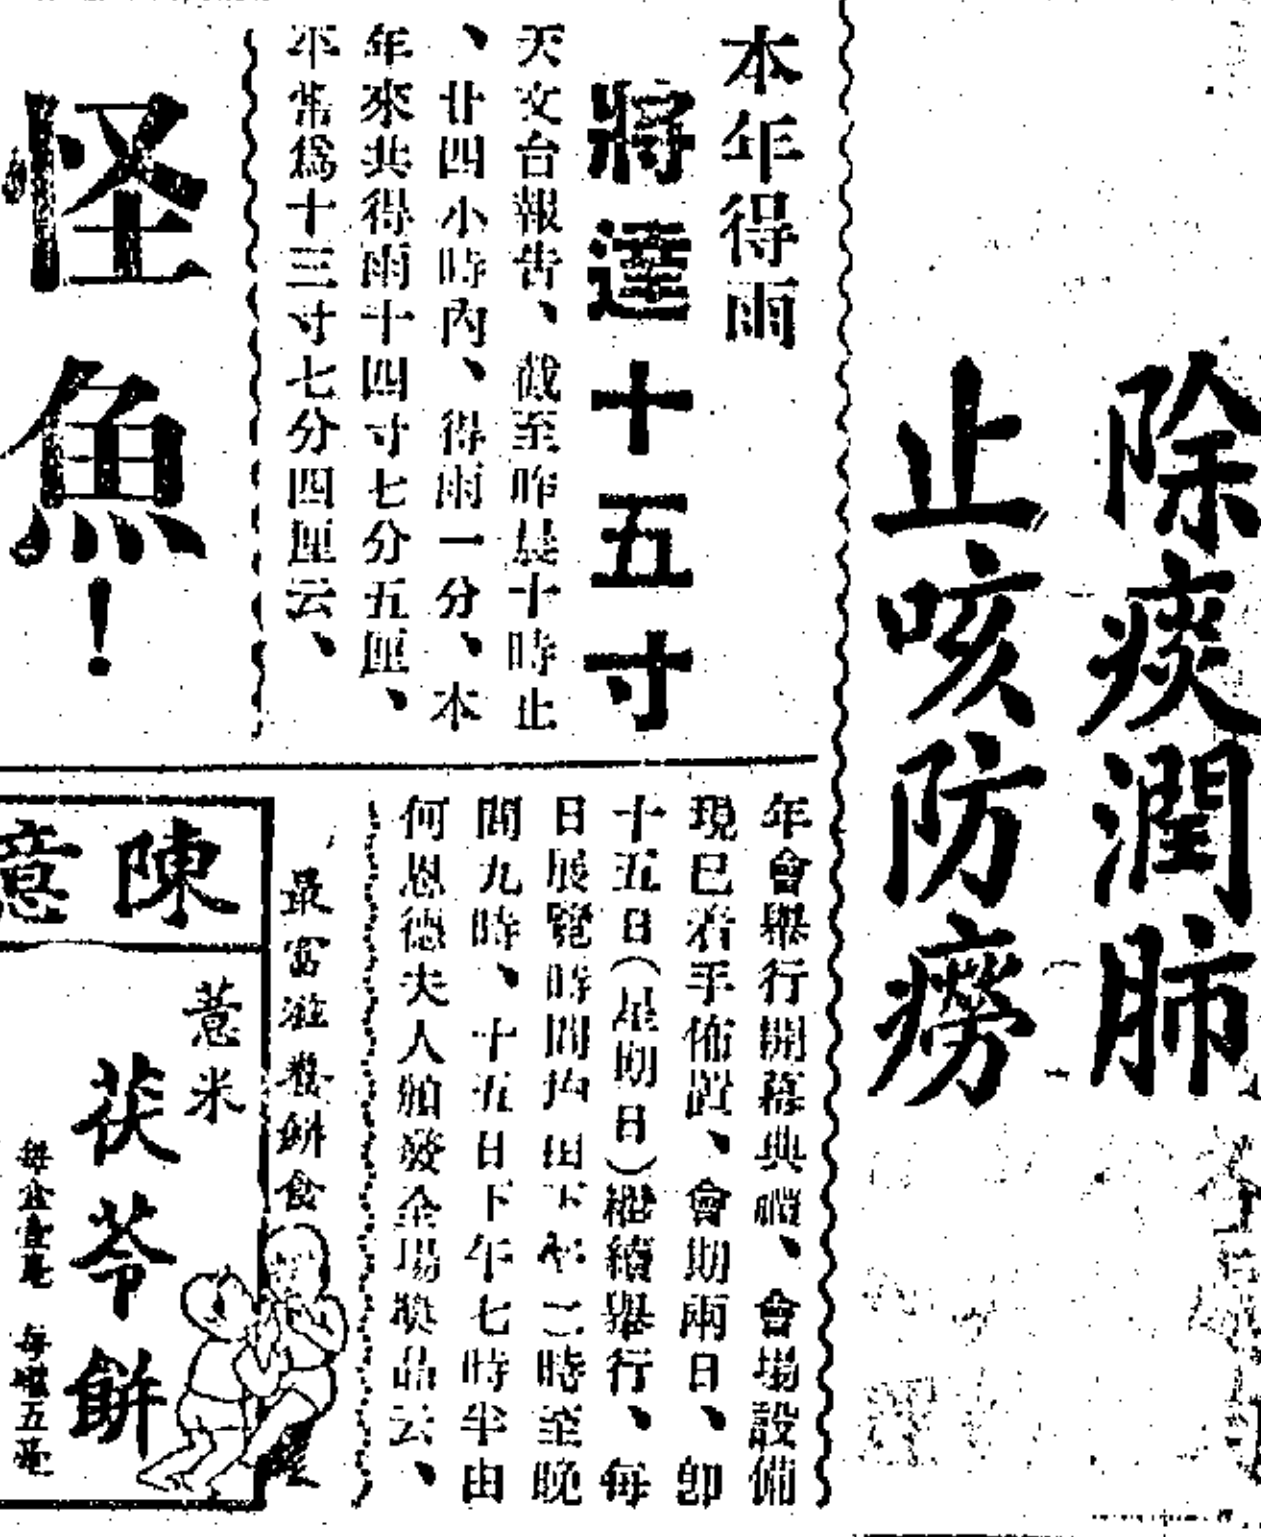 除痰潤肺
止咳防癆
本年得雨
將達十五寸
天文台報告、截至昨晨十時止
、廿四小時內、得雨一分、本
年來共得雨十四寸七分五厘、
平常爲十三寸七分四厘云、
怪魚!
年會舉行開幕典禮、會場設備
現已着手佈置、會期兩日、卽
十五日(星期日)繼續舉行、每
日展覽時間均由下午二時至晚
間九時、十五日下午七時半由
何恩德夫人頒發全場獎品云、
最富滋養餅食
陳意
薏米
茯苓餅
每盒壹毫 每罐五毫